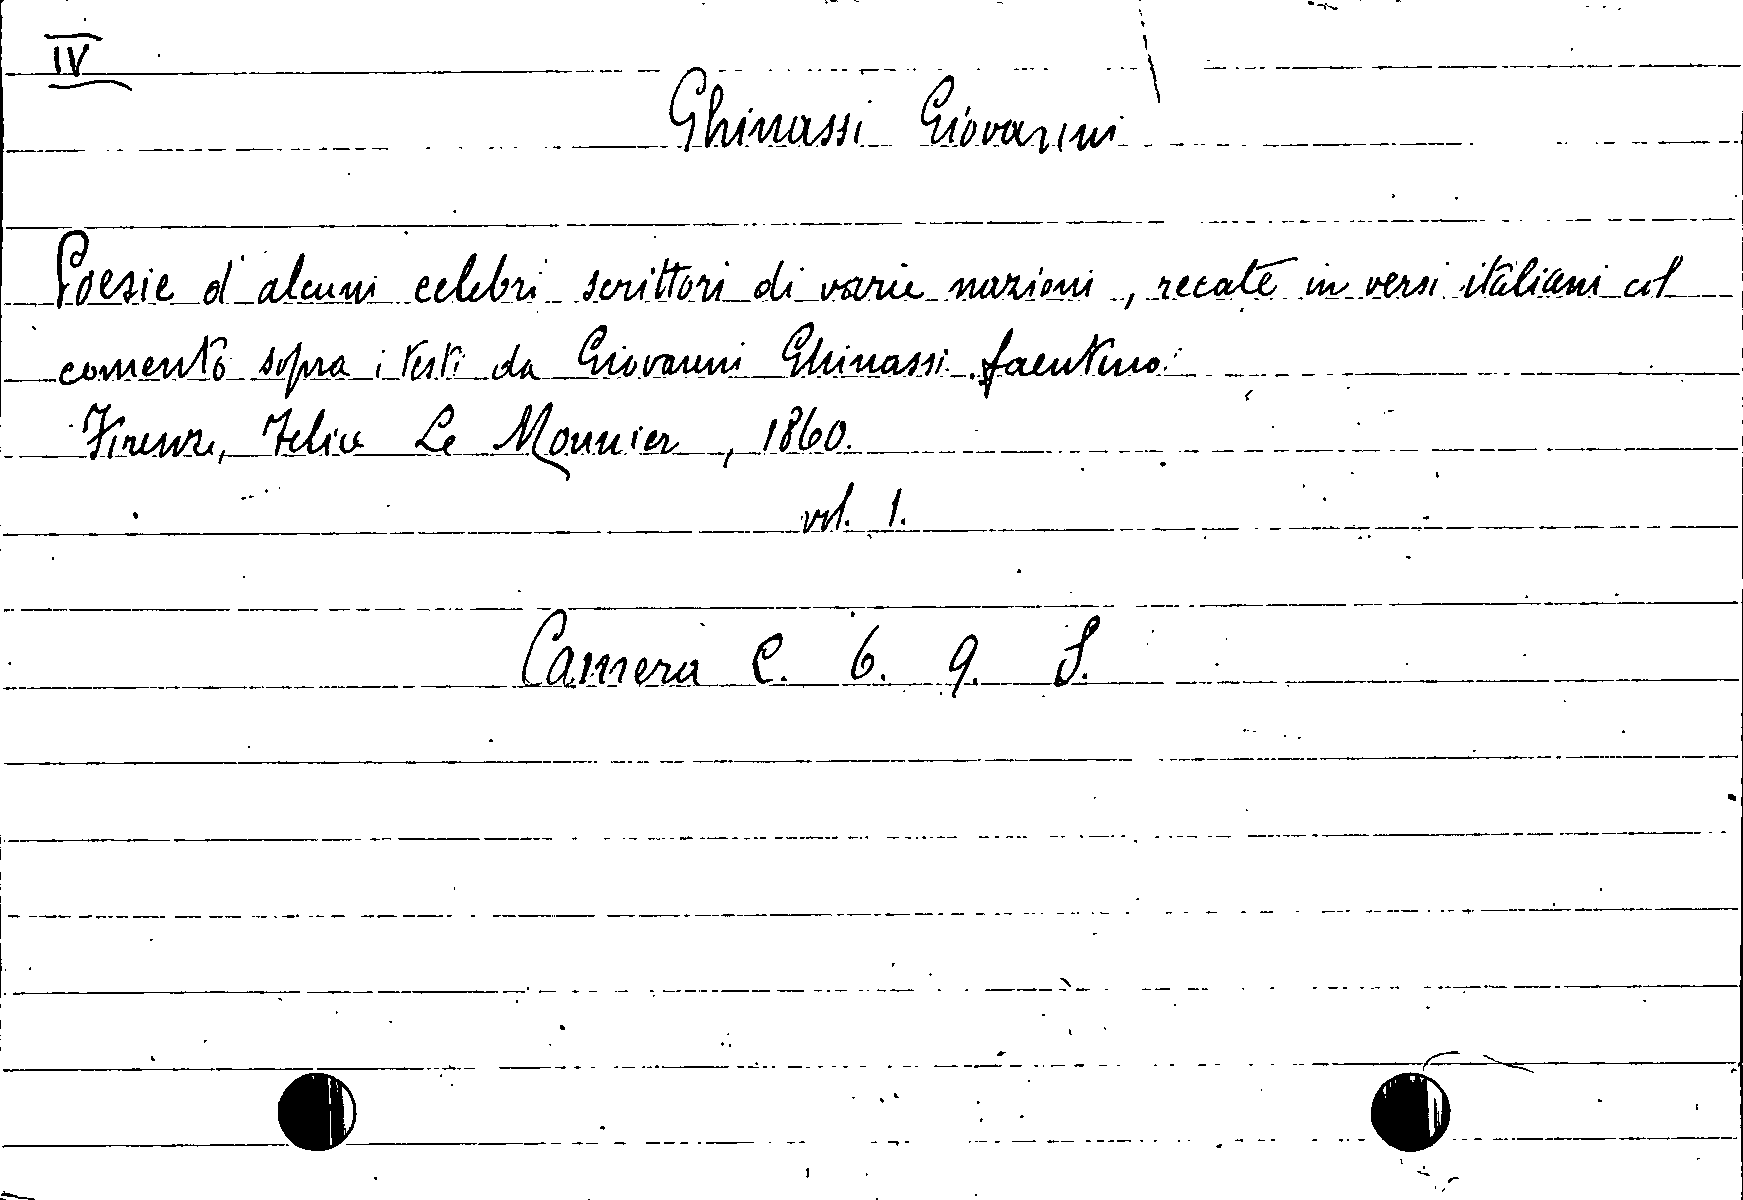 IV
Ghinassi Giovanni
Poesie d'alcuni celebri scrittori di varie nazioni, recate in versi italiani col
comento sopra i testi da Giovanni Ghinassi faentino.
Firenze, Felice Le Monnier, 1860.
vol. 1.
Camera C. 6. 9. S.